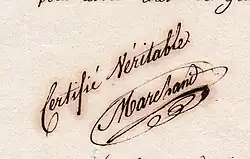 Certifié Véritable
Marchand